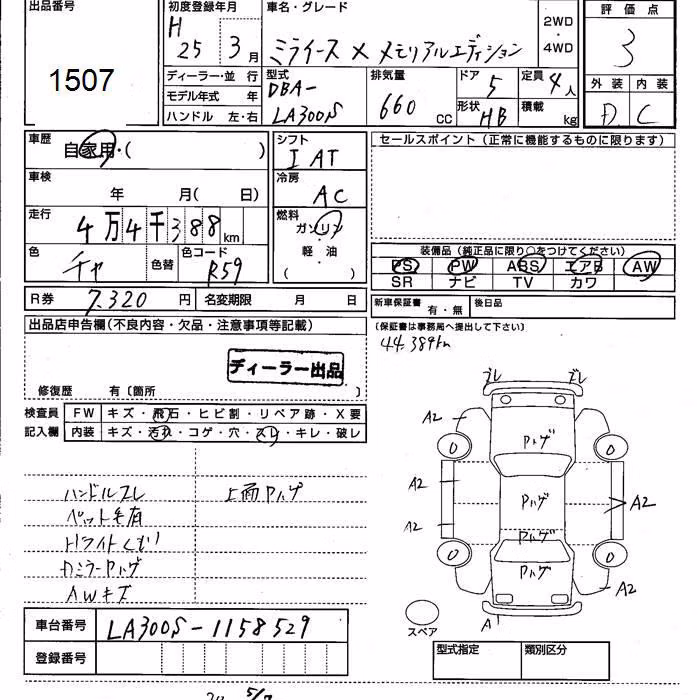 出品番号
1507
初度登録年月
H 25 3月
車名・グレード
ミライース X メモリアルエディション
2WD
・
4WD
評価点
3
ディーラー・並行
モデル年式 年
ハンドル 左・右
型式
DBA-
LA300S
排気量
660 CC
ドア 5
形状 HB
定員 4人
積載 kg
外装 内装
D C
車歴
自家用・( )
車検
年 月( 日)
走行
4万4千388km
色
チャ
色替
色コード
R59
シフト
I AT
冷房
AC
燃料
ガソリン
軽・油
( )
セールスポイント(正常に機能するものに限ります)
装備品(純正品に限り○をつけてください)
PS PW ABS エアB AW
SR ナビ TV カワ
R券 7,320 円
名変期限 月 日
新車保証書 有・無
後日品
(保証書は事務局へ提出して下さい)
44,389km
出品店申告欄(不良内容・欠品・注意事項等記載)
ディーラー出品
修復歴 有〔箇所 〕
検査員
記入欄
FW キズ・飛石・ヒビ割・リペア跡・X要
内装 キズ・汚れ・コゲ・穴・スレ・キレ・破レ
ハンドルスレ
上面Pハゲ
ペット毛有
ドライトくもり
DミラーPハゲ
AWキズ
ズレ ズレ
A2
Pハゲ
0 0
A2
Pハゲ
A2
A2
Pハゲ
0 0
Pハゲ
A2
A1
スペア
車台番号 LA300S-1158529
登録番号
型式指定 類別区分